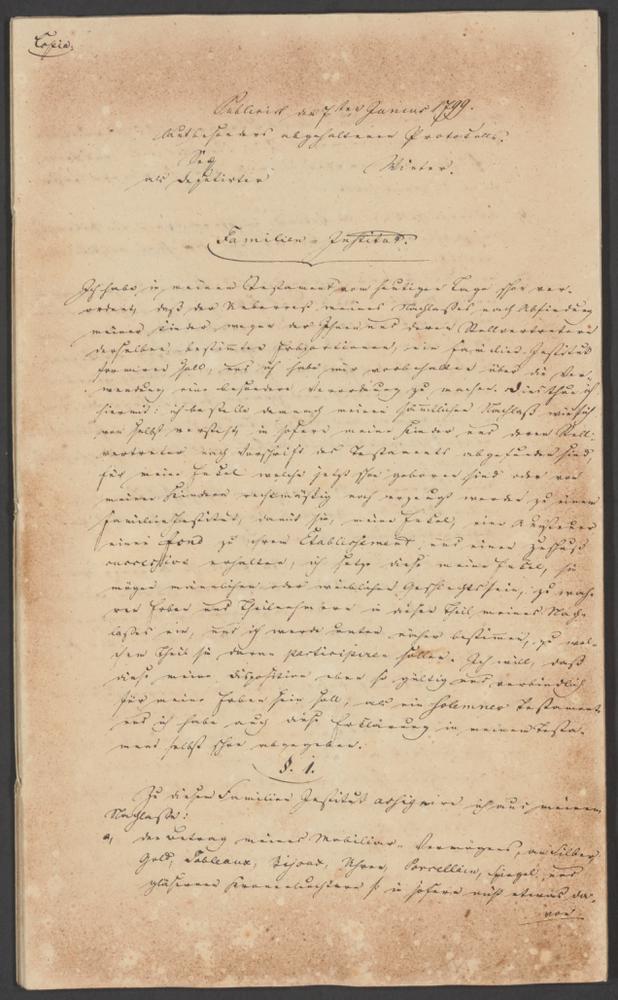 Copia.
Publicirt den 7ten Januar 1799.
laut besonders abgehaltenen Protocolls.
Seg Winter.
als deputirter
Familien-Institut.
Ich habe in meinem Testament vom heutigen Tage schon ver-
ordnet, daß der Ueberrest meines Nachlaßes, nach Abfindung
meiner Kinder wegen der Ihnen und deren Stellvertretern
derselben bestimmten Erbportionen, ein Familien-Institut
formiren soll, und ich habe mir vorbehalten über die Ver-
wendung eine besondere Verordnung zu machen. Dies thue ich
hiermit: ich bestelle demnach meinen sämtlichen Nachlaß wie sich
von selbst versteht, in sofern meine Kinder und deren Stell-
vertreter nach Vorschrift des Testaments abgefunden sind,
für meine Enkel welche jetzt schon geboren sind oder von
meinen Kindern rechtmäßig noch erzeugt werden zu einem
Familieninstitut, damit sie, meine Enkel, eine Aussteuer
einen Fond zu ihrem Etablissement, und einen Zuschuß
successive erhalten, ich setze diese meine Enkel, sie
mögen männlichen oder weiblichen Geschlechts sein, zu wah-
ren Erben und Theilnehmern in diesen Theil meines Nach-
laßes ein, und ich werde unten näher bestimmen, zu wel-
chem Theil sie daran participiren sollen. Ich will, daß
diese meine Disposition eben so gültig und verbindlich
für meine Erben sein soll, als ein solemnes Testament
und ich habe auch diese Erklärung in meinem Testa-
ment selbst schon abgegeben.
§. 1.
Zu diesem Familien Institut assignire ich aus meinem
Nachlaße:
a, den Betrag meines Mobiliar-Vermögens, an Silber
Gold, Tableaux, Bijoux, Uhren, Porcellain, Spiegel, und
gläsernen Kronenleuchtern in sofern nicht etwas da-
von